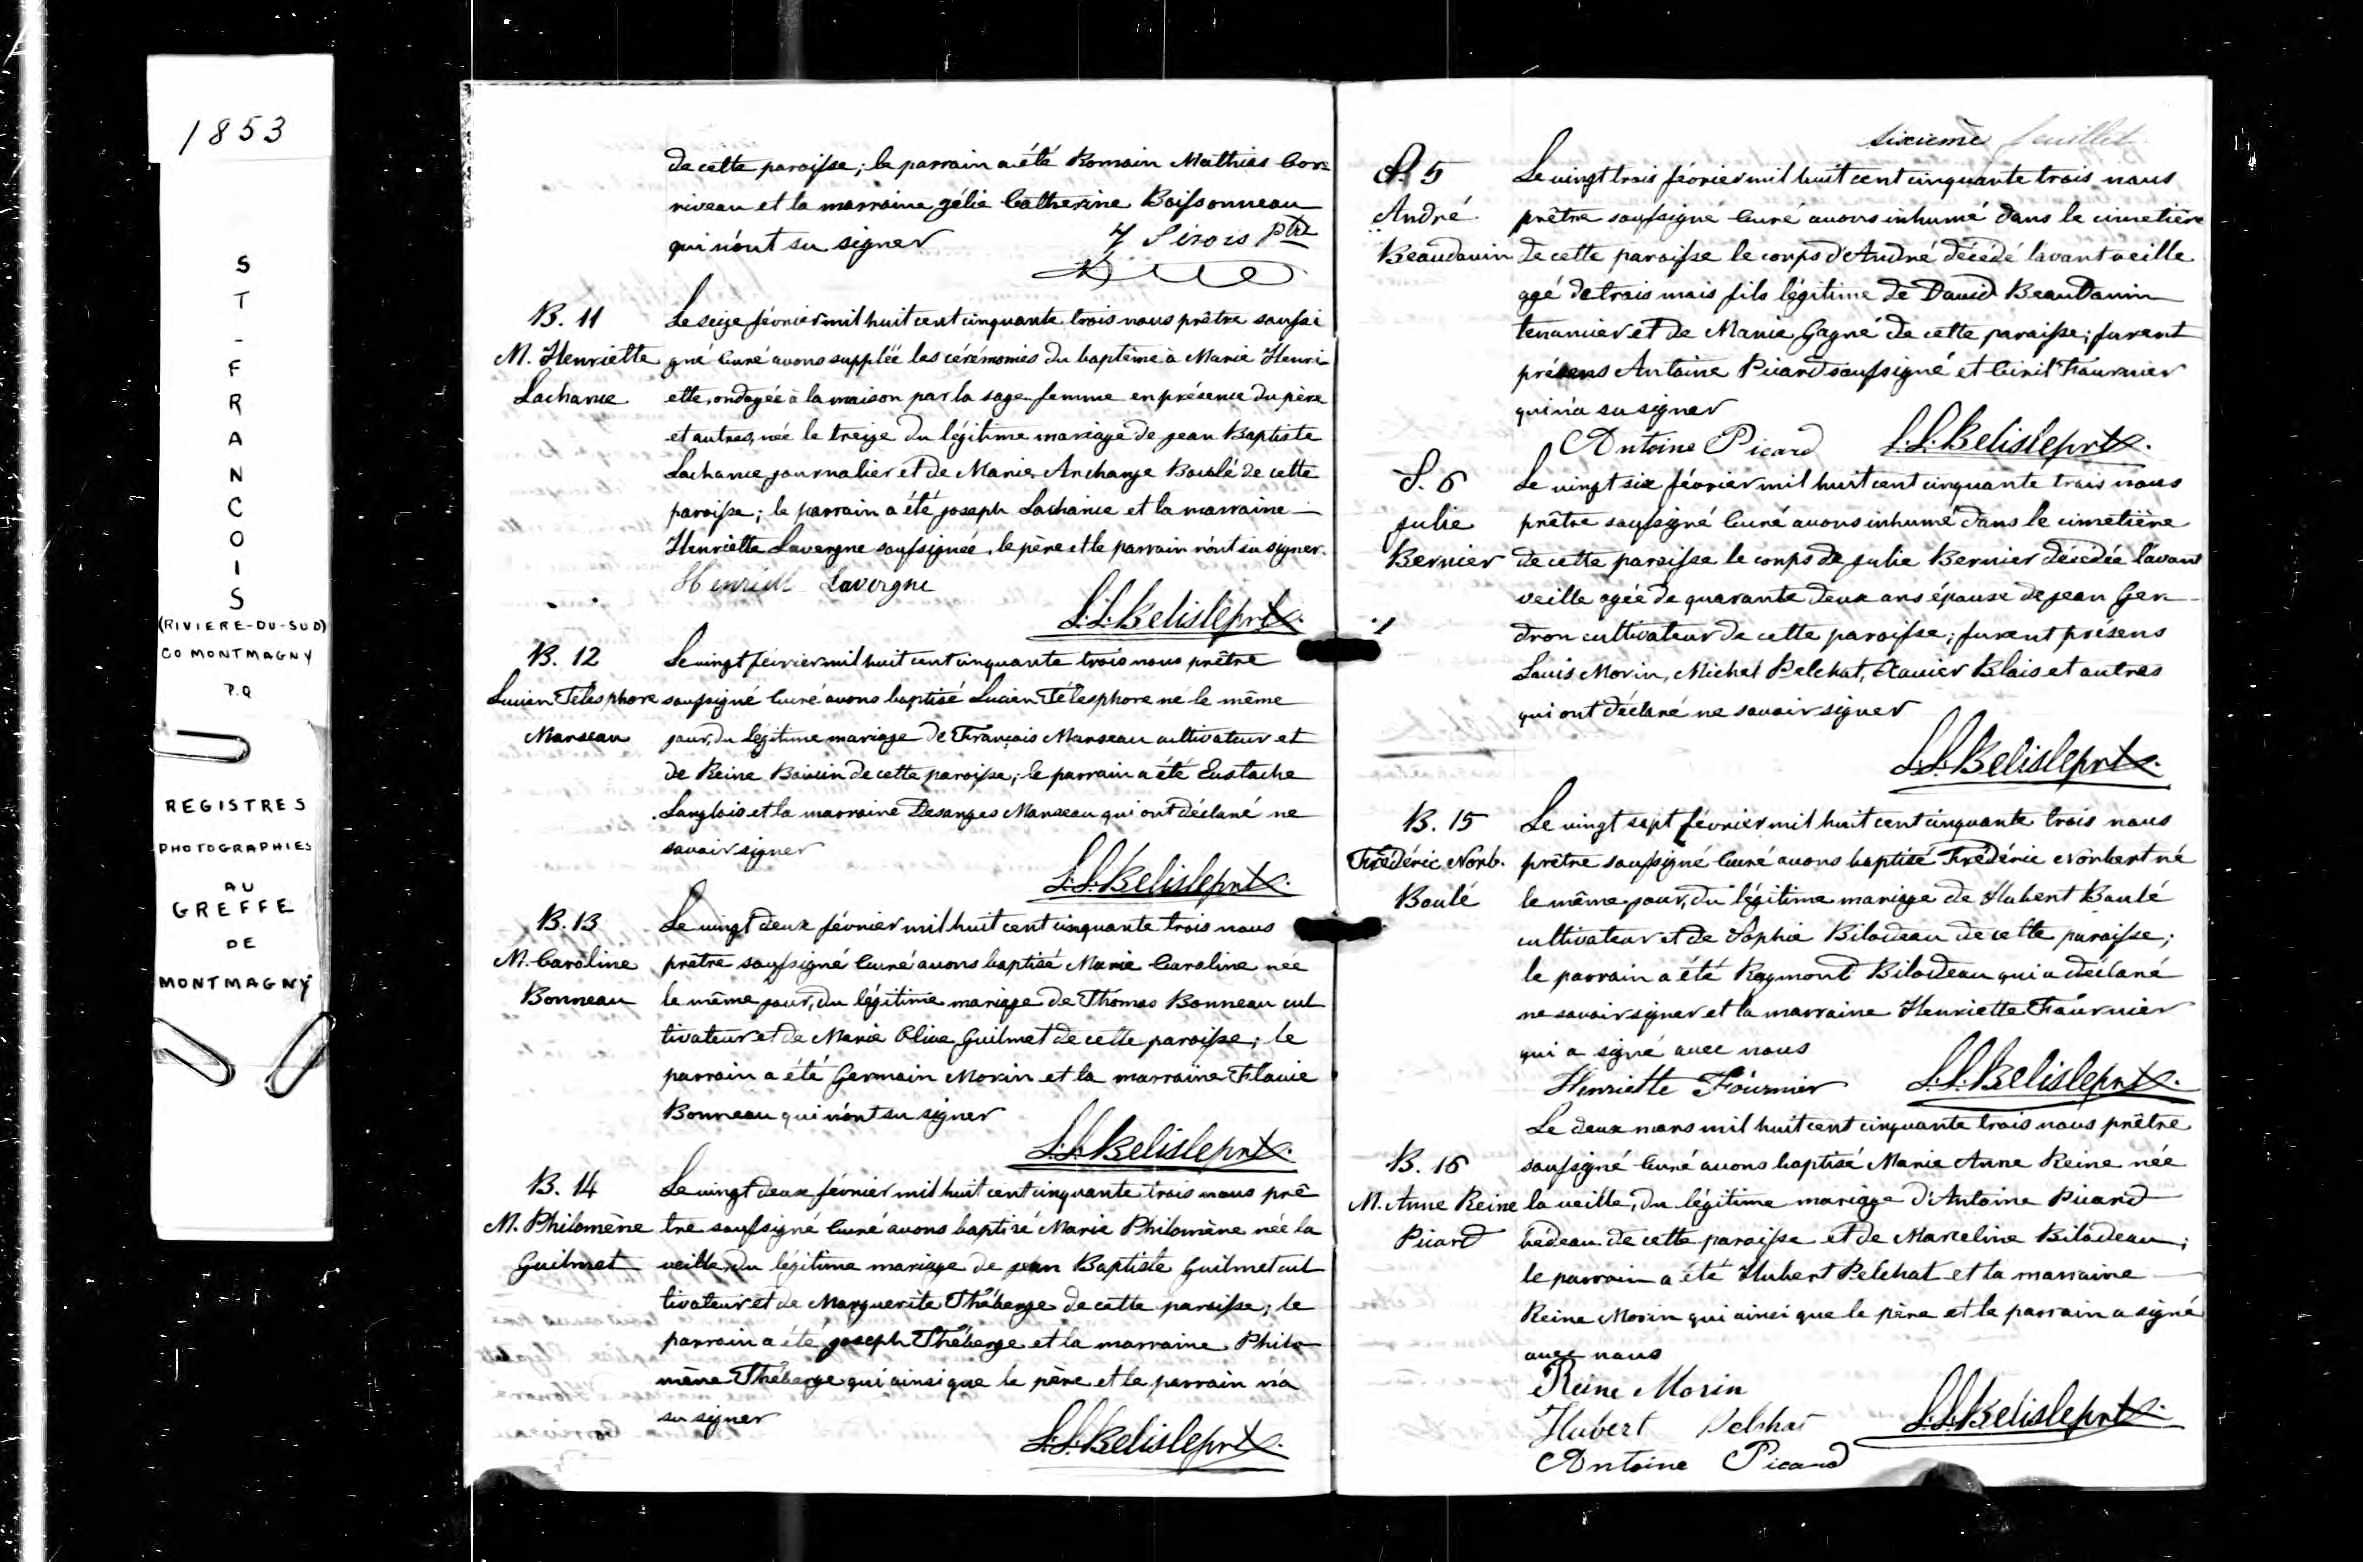 1853
ST-FRANCOIS
(RIVIERE-DU-SUD)
CO MONTMAGNY
P.Q
REGISTRES
PHOTOGRAPHIES
AU
GREFFE
DE
MONTMAGNY
de cette paroisse; le parrain a été Romain Mathias Cor=
riveau et la marraine Zélie Catherine Boissonneau
qui n'ont su signer
Z Sirois Ptre
B. 11
M. Henriette
Lachance
Le seize février mil huit cent cinquante trois nous prêtre soussi
gné Curé avons suppléé les cérémonies du baptême à Marie Henri
ette, ondoyée à la maison par la sage-femme en présence du père
et autres, née le treize du légitime mariage de Jean Baptiste
Lachance journalier et de Marie Archange Boulé de cette
paroisse; le parrain a été Joseph Lachance et la marraine
Henriette Lavergne soussignée, le père et le parrain n'ont su signer.
Henriette Lavergne
L.L. Belisle prtre.
B. 12
Lucien Télesphore
Marseau
Le vingt février mil huit cent cinquante trois nous prêtre
soussigné Curé avons baptisé Lucien Télesphore né le même
jour, du légitime mariage de François Marseau cultivateur et
de Reine Boivin de cette paroisse; le parrain a été Eustache
Langlois et la marraine Desanges Marseau qui ont déclaré ne
savoir signer
L.L. Belisle prtre.
B. 13
M. Caroline
Bonneau
Le vingt deux février mil huit cent cinquante trois nous
prêtre soussigné Curé avons baptisé Marie Caroline née
le même jour, du légitime mariage de Thomas Bonneau cul
tivateur et de Marie Olive Guilmet de cette paroisse; le
parrain a été Germain Morin et la marraine Flavie
Bonneau qui n'ont su signer
L.L. Belisle prtre.
B. 14
M. Philomène
Guilmet
Le vingt deux février mil huit cent cinquante trois nous prê
tre soussigné Curé avons baptisé Marie Philomène née la
veille, du légitime mariage de Jean Baptiste Guilmet cul
tivateur et de Marguerite Théberge de cette paroisse; le
parrain a été Joseph Théberge et la marraine Philo
mène Théberge qui ainsi que le père et le parrain n'a
su signer
L.L. Belisle prtre.
sixième feuillet
S. 5
André
Beaudouin
Le vingt trois février mil huit cent cinquante trois nous
prêtre soussigné Curé avons inhumé dans le cimetière
de cette paroisse le corps d'André décédé l'avant veille
agé de trois mois fils légitime de David Beaudouin
tenancier et de Marie Gagné de cette paroisse; furent
présens Antoine Picard soussigné et Ciril Fournier
qui n'a su signer
Antoine Picard L.L. Belisle prtre.
S. 6
Julie
Bernier
Le vingt six février mil huit cent cinquante trois nous
prêtre soussigné Curé avons inhumé dans le cimetière
de cette paroisse le corps de Julie Bernier décédée l'avant
veille agée de quarante deux ans épouse de Jean Gen-
dron cultivateur de cette paroisse; furent présens
Louis Morin, Michel Pelchat, Xavier Blais et autres
qui ont déclaré ne savoir signer
L.L. Belisle prtre.
B. 15
Frédéric Norb.
Boulé
Le vingt sept février mil huit cent cinquante trois nous
prêtre soussigné Curé avons baptisé Frédéric Norbert né
le même jour, du légitime mariage de Hubert Boulé
cultivateur et de Sophie Bilodeau de cette paroisse;
le parrain a été Raymond Bilodeau qui a déclaré
ne savoir signer et la marraine Henriette Fournier
qui a signé avec nous
Henriette Fournier L.L. Belisle prtre.
B. 16
M. Anne Reine
Picard
Le deux mars mil huit cent cinquante trois nous prêtre
soussigné Curé avons baptisé Marie Anne Reine née
la veille, du légitime mariage d'Antoine Picard
bédeau de cette paroisse et de Marceline Bilodeau;
le parrain a été Hubert Pelchat et la marraine
Reine Morin qui ainsi que le père et le parrain a signé
avec nous
Reine Morin
Hubert Pelchat L.L. Belisle prtre.
Antoine Picard